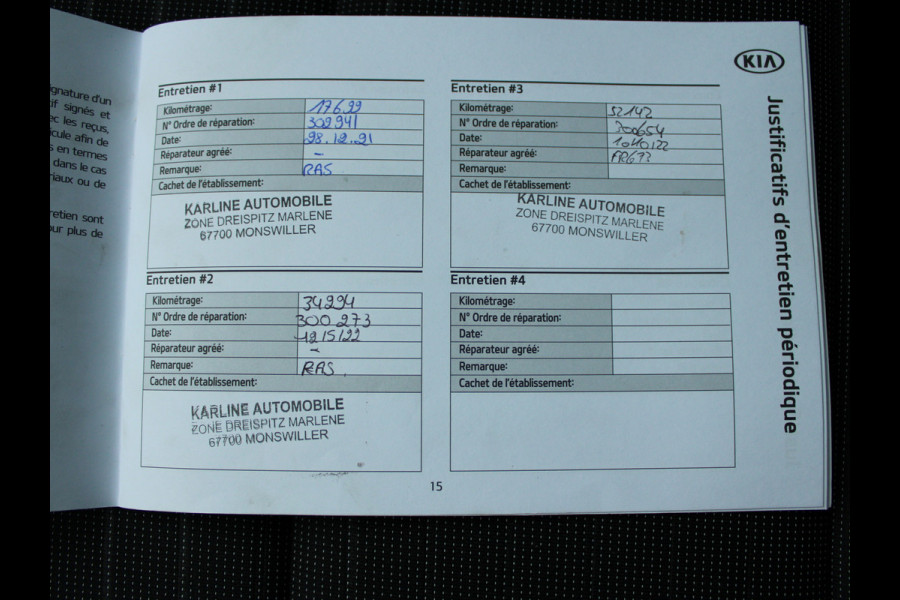 gnature d'un
if signés et
c les reçus,
icule afin de
s en termes
dans le cas
riaux ou de
retien sont
our plus de
KIA
Justificatifs d'entretien périodique
Entretien #1
Kilométrage: 17699
N° Ordre de réparation: 302941
Date: 28.12.21
Réparateur agréé: -
Remarque: RAS
Cachet de l'établissement:
KARLINE AUTOMOBILE
ZONE DREISPITZ MARLENE
67700 MONSWILLER
Entretien #2
Kilométrage: 34294
N° Ordre de réparation: 300273
Date: 12/5/22
Réparateur agréé: -
Remarque: RAS.
Cachet de l'établissement:
KARLINE AUTOMOBILE
ZONE DREISPITZ MARLENE
67700 MONSWILLER
Entretien #3
Kilométrage: 52142
N° Ordre de réparation: 300654
Date:
Réparateur agréé:
Remarque:
Cachet de l'établissement:
KARLINE AUTOMOBILE
ZONE DREISPITZ MARLENE
67700 MONSWILLER
Entretien #4
Kilométrage:
N° Ordre de réparation:
Date:
Réparateur agréé:
Remarque:
Cachet de l'établissement:
15